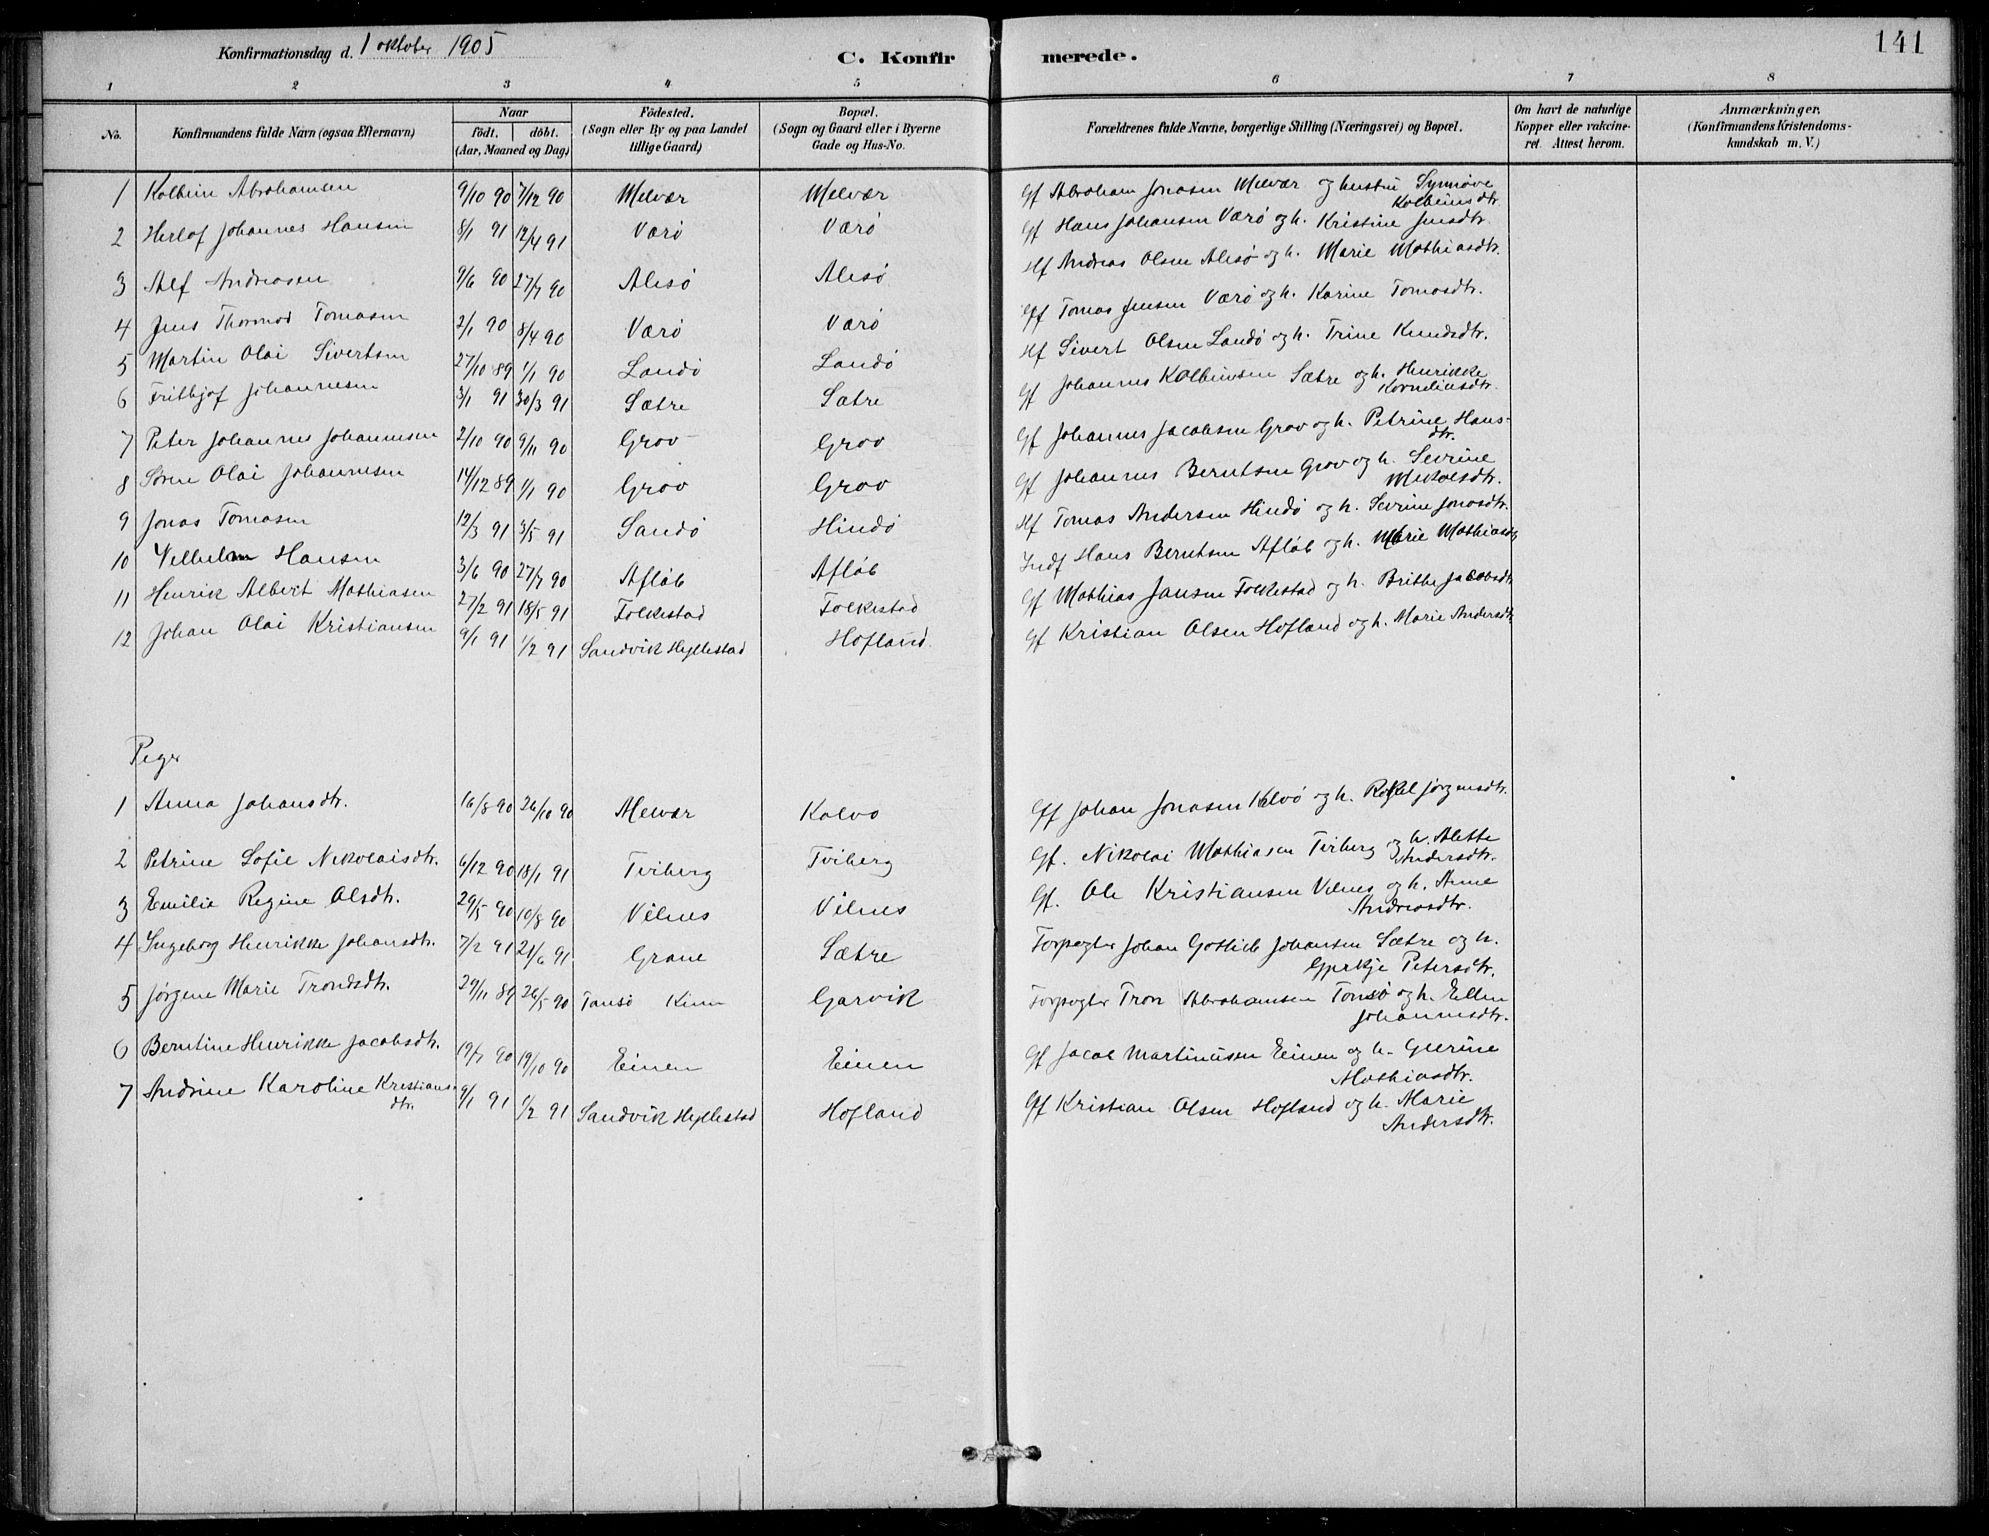 Konfirmationsdag d. 1 oktober 1905
C. Konfirmerede.
141
1 2 3 4 5 6 7 8
No. Konfirmandens fulde Navn (ogsaa Efternavn) Naar födt, döbt. (Aar, Maaned og Dag) Födested. (Sogn eller By og paa Landet tillige Gaard) Bopæl. (Sogn og Gaard eller i Byerne Gade og Hus-No. Forældrenes fulde Navne, borgerlige Stilling (Næringsvei) og Bopæl. Om havt de naturlige Kopper eller vakcineret. Attest herom. Anmærkninger. (Konfirmandens Kristendomskundskab m. V.)
1 Kolbein Abrahamsen 9/10 90 7/12 90 Melvær Melvær Gf Abraham Jonasen Melvær og hustru Synnøve Kolbeinsdtr.
2 Herlof Johannes Hansen 8/1 91 12/4 91 Værö Værö Gf Hans Johansen Værö og h. Kristine Jensdtr.
3 Alf Andreasen 9/6 90 27/7 90 Alesö Alesö Hf Andreas Olsen Alesö og h. Marie Mathiasdtr.
4 Jens Thormod Tomasen 2/1 90 8/4 90 Værö Værö Gf Tomas Jensen Værö og h. Karine Tomasdtr.
5 Martin Olai Sivertsen 27/10 89 1/1 90 Landö Landö Hf Sivert Olsen Landö og h. Trine Knudsdtr.
6 Frithjof Johannesen 3/1 91 30/3 91 Sætre Sætre Gf Johannes Kolbeinsen Sætre og h. Henrikke Korneliusdtr.
7 Peter Johannes Johannesen 2/10 90 9/11 90 Grov Grov Gf Johannes Jacobsen Grov og h. Petrine Hansdtr.
8 Sören Olai Johannesen 14/12 89 1/1 90 Grov Grov Gf Johannes Berntsen Grov og h. Sevrine
9 Jonas Tomasen 12/3 91 3/5 91 Sandö Hindö Hf Tomas Andersen Hindö og h. Sevrine Jonasdtr.
10 Vilhelm Hansen 3/6 90 27/7 90 Aflöb Aflöb Indf Hans Berntsen Aflöb og h. Marie Mathiasdtr
11 Henrik Albert Mathiasen 27/2 91 18/5 91 Folkestad Folkestad Gf Mathias Jansen Folkestad og h. Brithe Jacobsdtr
12 Johan Olai Kristiansen 9/1 91 1/2 91 Sandvik Hyllestad Hofland. Gf Kristian Olsen Hofland og h. Marie Andersdtr
Piger
1 Anna Johansdtr. 16/8 90 26/10 90 Melvær Kalvö Gf Johan Jonasen Kalvö og h. Rakel Jörgensdtr.
2 Petrine Sofie Nikolaisdtr. 6/12 90 18/1 91 Tviberg Tviberg Gf. Nikolai Mathiasen Tviberg og h. Alette Andersdtr.
3 Emilie Regine Olsdtr. 29/5 90 10/8 90 Vilnes Vilnes Gf. Ole Kristiansen Vilnes og h. Anne Andreasdtr.
4 Ingeborg Henrikke Johansdtr. 7/2 91 21/6 91 Grane Sætre Forpagter Johan Gotlieb Johansen Sætre og h. Gjertje Petersdtr.
5 Jörgene Marie Trondsdtr. 29/11 89 26/5 90 Tansö Kinn Garvik Forpagter Tron Abrahamsen Tansö og h. Ellen Johannesdtr.
6 Berntine Henrikke Jacobsdtr. 19/7 90 19/10 90 Einen Einen Gf Jacob Martinusen Einen og h. Gurine Mathiasdtr.
7 Andrine Karoline Kristiansdtr. 9/1 91 1/2 91 Sandvik Hyllestad Hofland Gf Kristian Olsen Hofland og h. Marie Andersdtr.